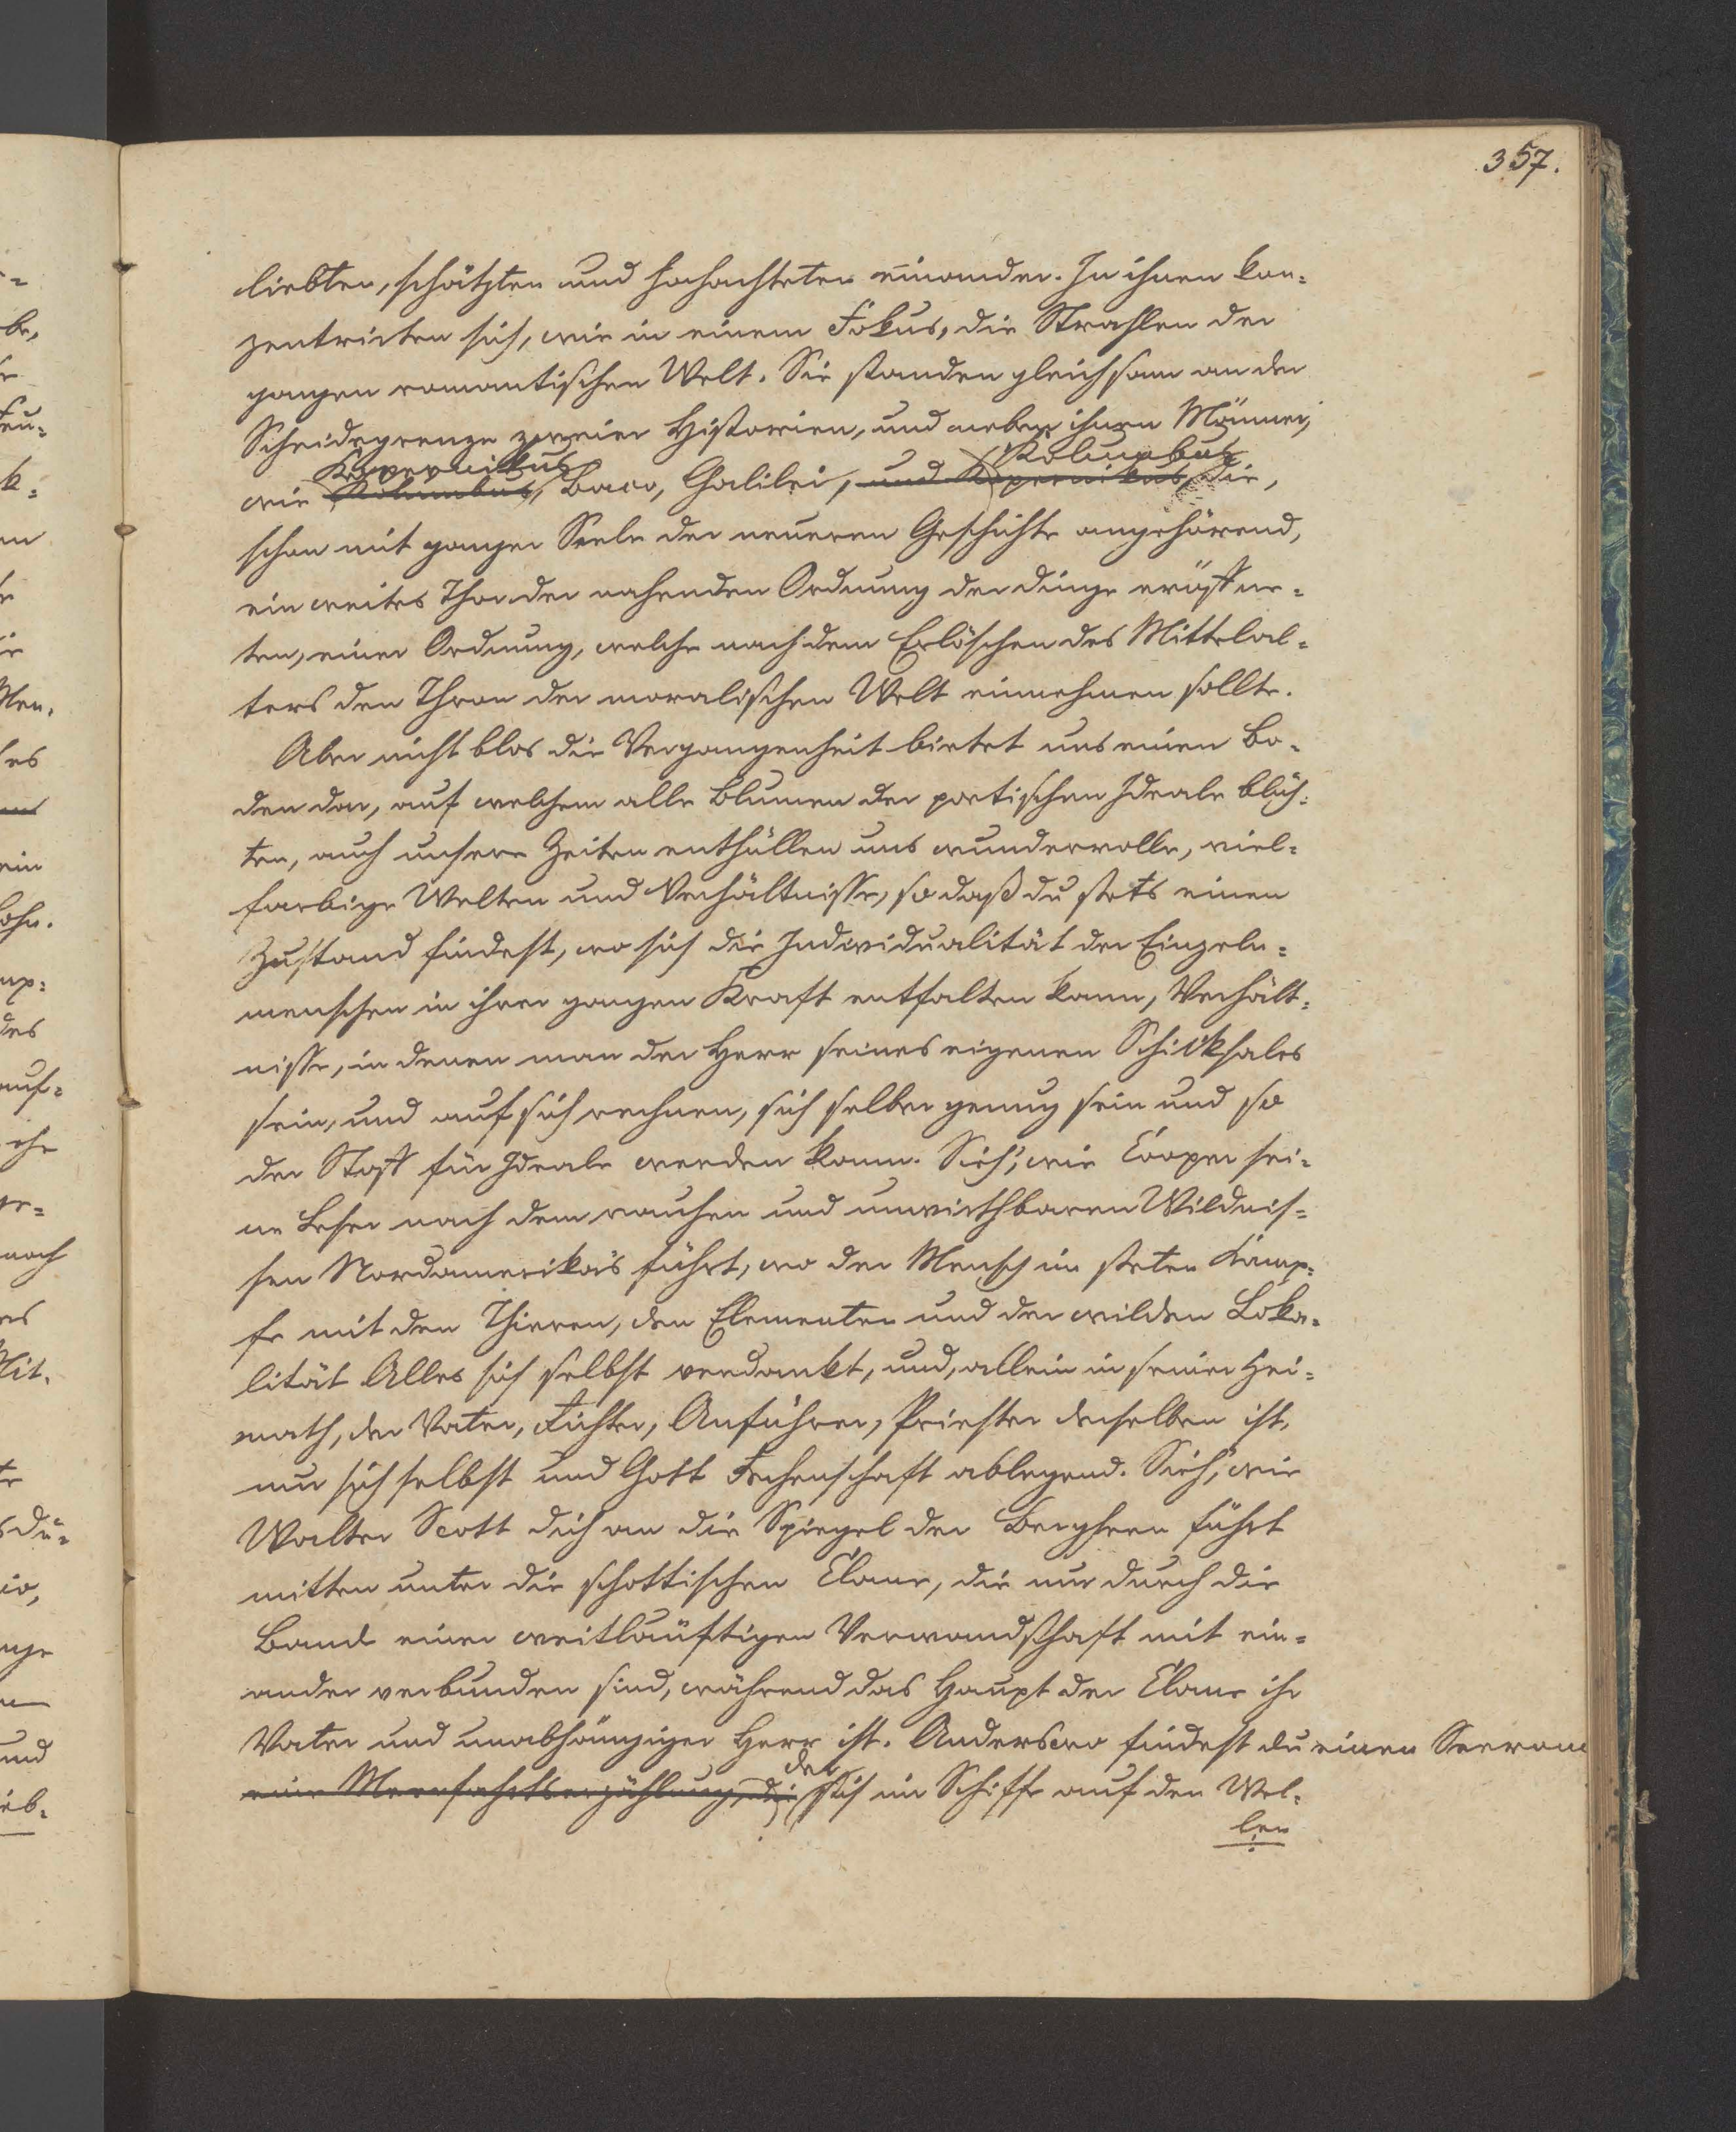 357.
liebten, schätzten und hochachteten einander. In ihnen kon-
zentrirten sich, wie in einem Fokus, die Strahlen der
ganzen romantischen Welt. Sie standen gleichsam an der
Scheidegrenze zweier Historien, und neben ihnen Männer,
Kopernikus Kolumbus
wie Kolumbus, Baco, Galilei, und Kopernikus, die,
schon mit ganzer Seele der neueren Geschichte angehörend,
ein weites Thor der nahenden Ordnung der Dinge eröffne-
ten, einer Ordnung, welche nach dem Erlöschen des Mittelal-
ters den Thron der moralischen Welt einnehmen sollte.
Aber nicht blos die Vergangenheit bietet uns einen Bo-
den dar, auf welchem alle Blumen der poetischen Ideale blüh-
ten, auch unsere Zeiten enthüllen uns wundervolle, viel-
farbige Welten und Verhältnisse, so daß du stets einen
Zustand findest, wo sich die Individualität der Einzeln-
menschen in ihrer ganzen Kraft entfalten kann, Verhält-
nisse, in denen man der Herr seines eigenen Schicksales
sein, und auf sich rechnen, sich selber genug sein und so
der Stoff für Ideale werden kann. Sieh', wie Cooper sei-
ne Leser nach den rauhen und unwirthbaren Wildnis-
sen Nordamerika's führt, wo der Mensch im steten Kamp-
fe mit den Thieren, den Elementen und der wilden Loka-
lität Alles sich selbst verdankt, und, allein in seiner Hei-
math, der Vater, Richter, Anführer, Priester derselben ist,
nur sich selbst und Gott Rechenschaft ablegend. Sieh', wie
Walter Scott dich an die Spiegel der Bergseen führt
mitten unter die schottischen Clane, die nur durch die
Bande einer weitläuftigen Verwandschaft mit ein-
ander verbunden sind, während das Haupt der Clane ihr
Vater und unabhängiger Herr ist. Anderswo findest du einen Seeroman
der
eine Meerfahrtserzählung, die dich im Schiffe auf den Wel-
len